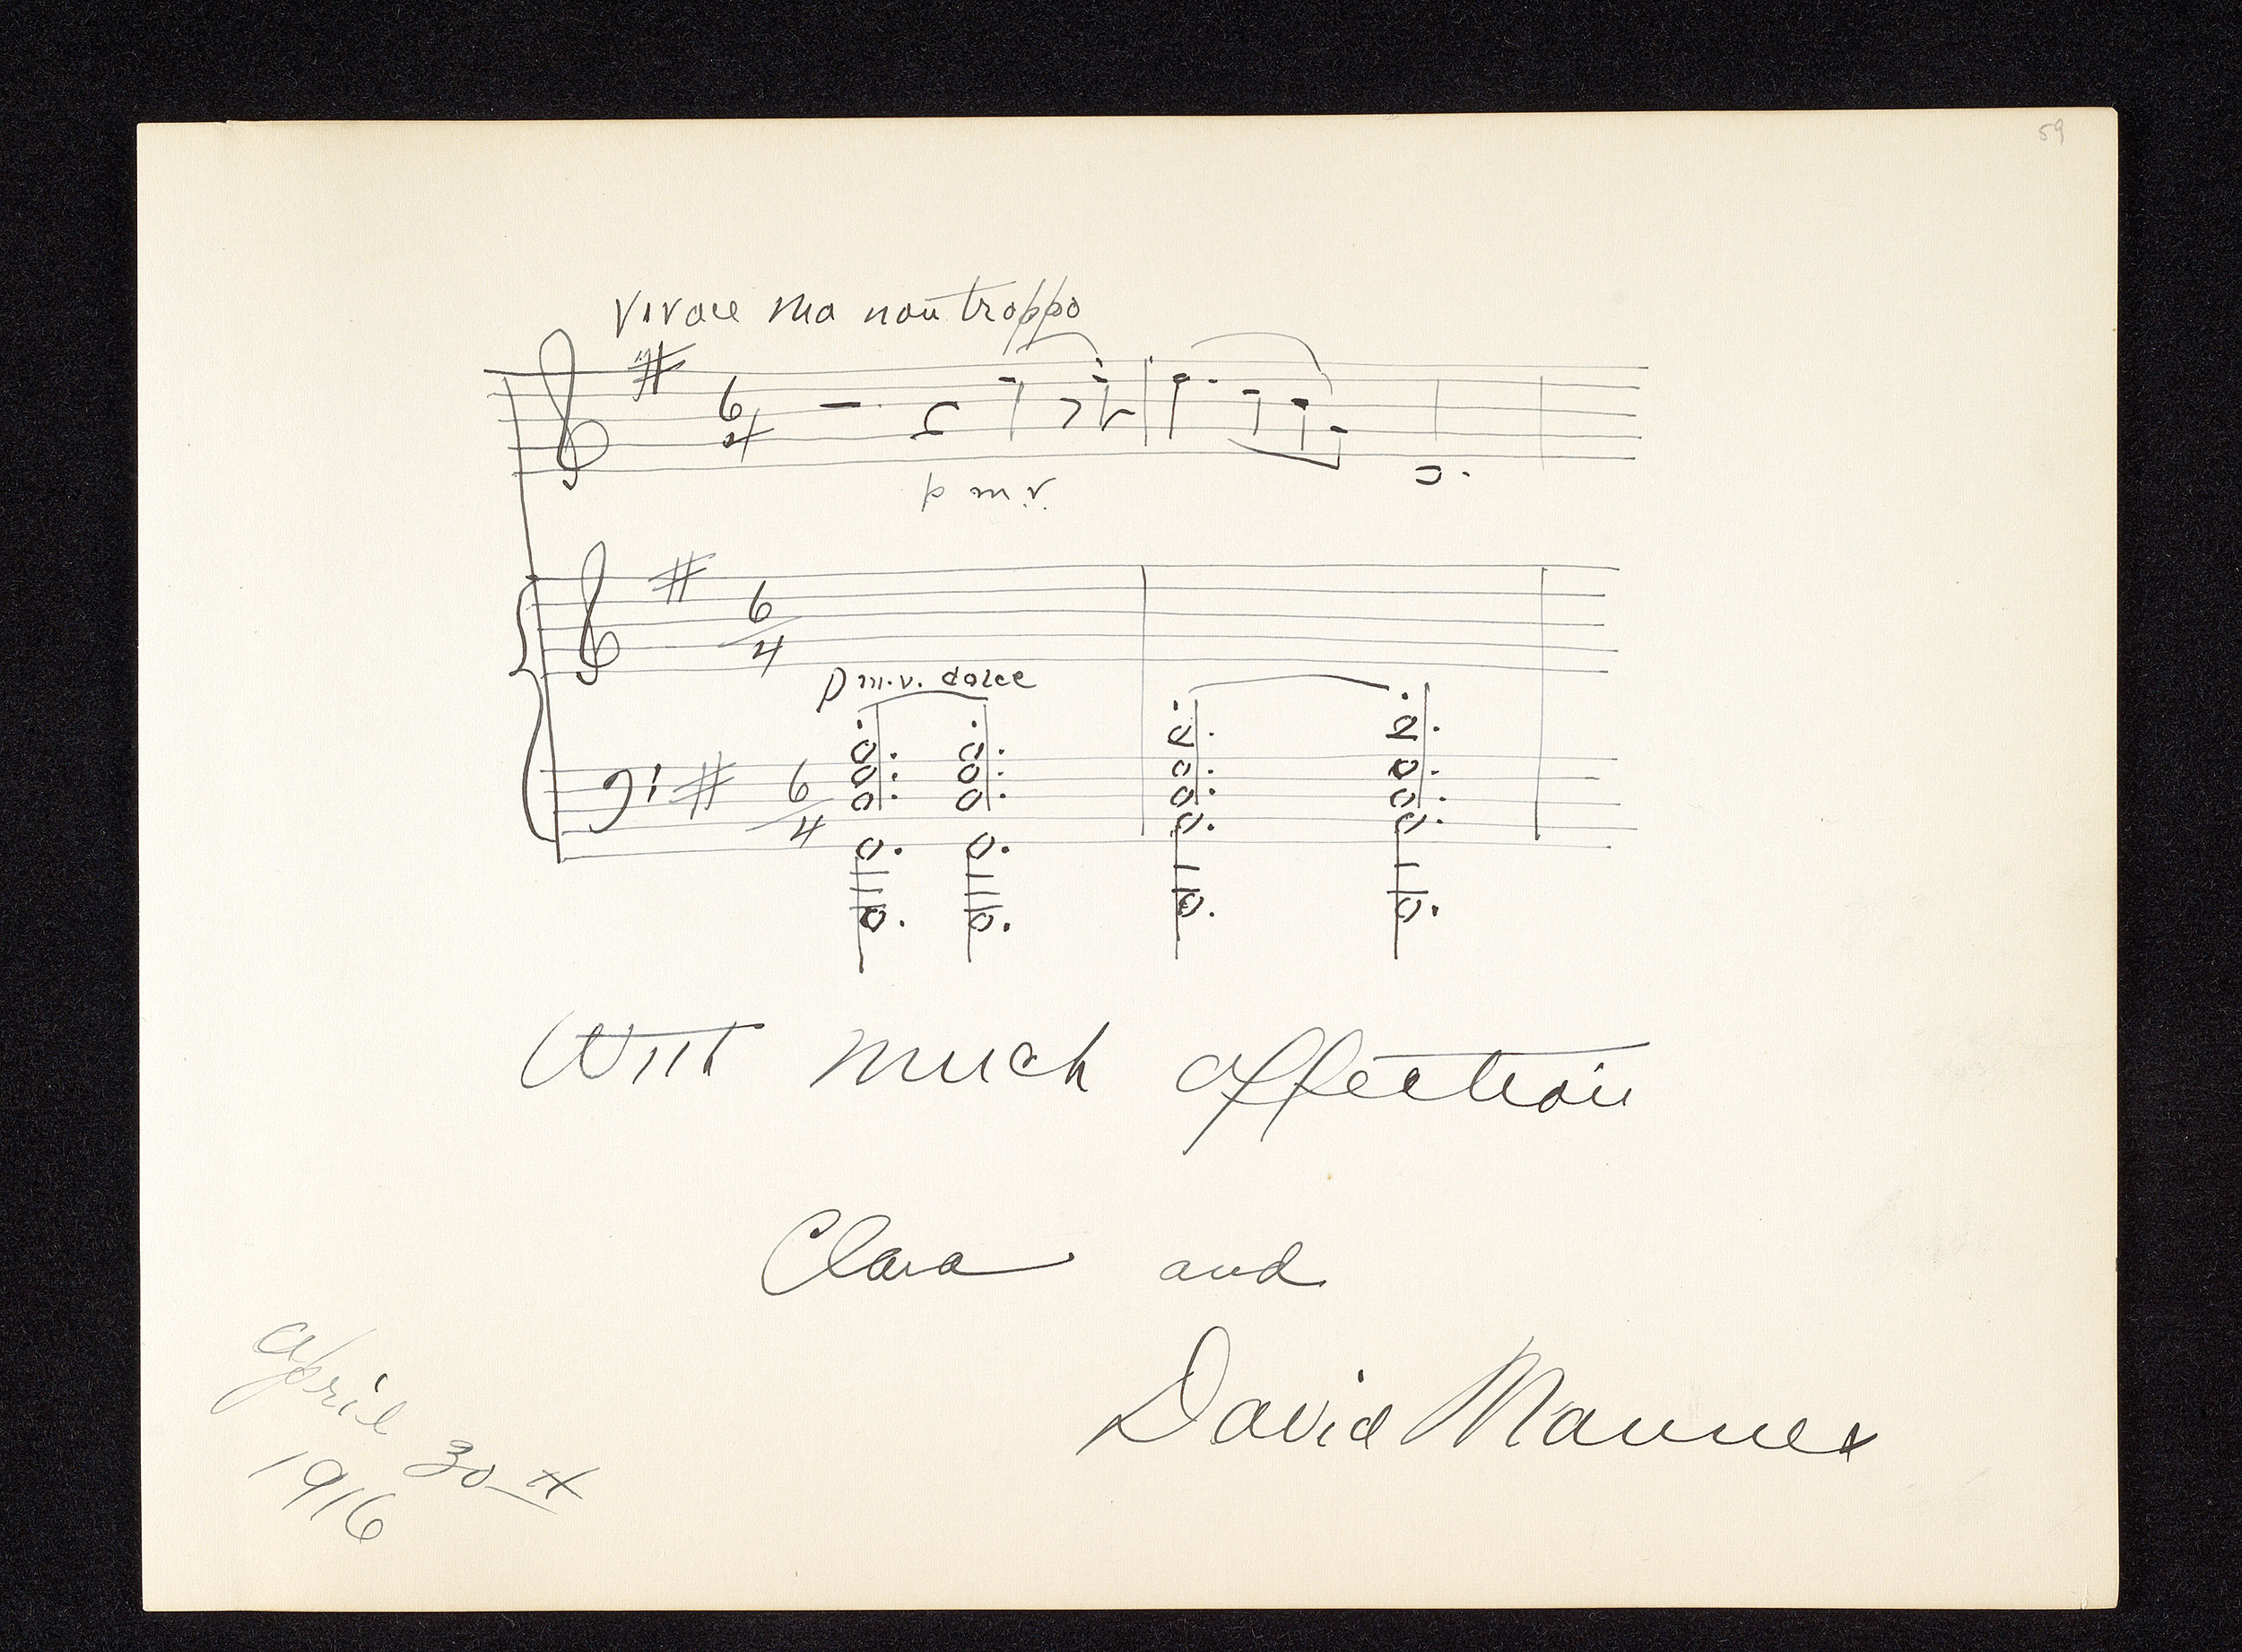 59
Vivace ma non troppo
6
4
p m.v.
6
4
p m.v. dolce
6
4
With much affection
Clara and
David Mannes
April 30th
1916